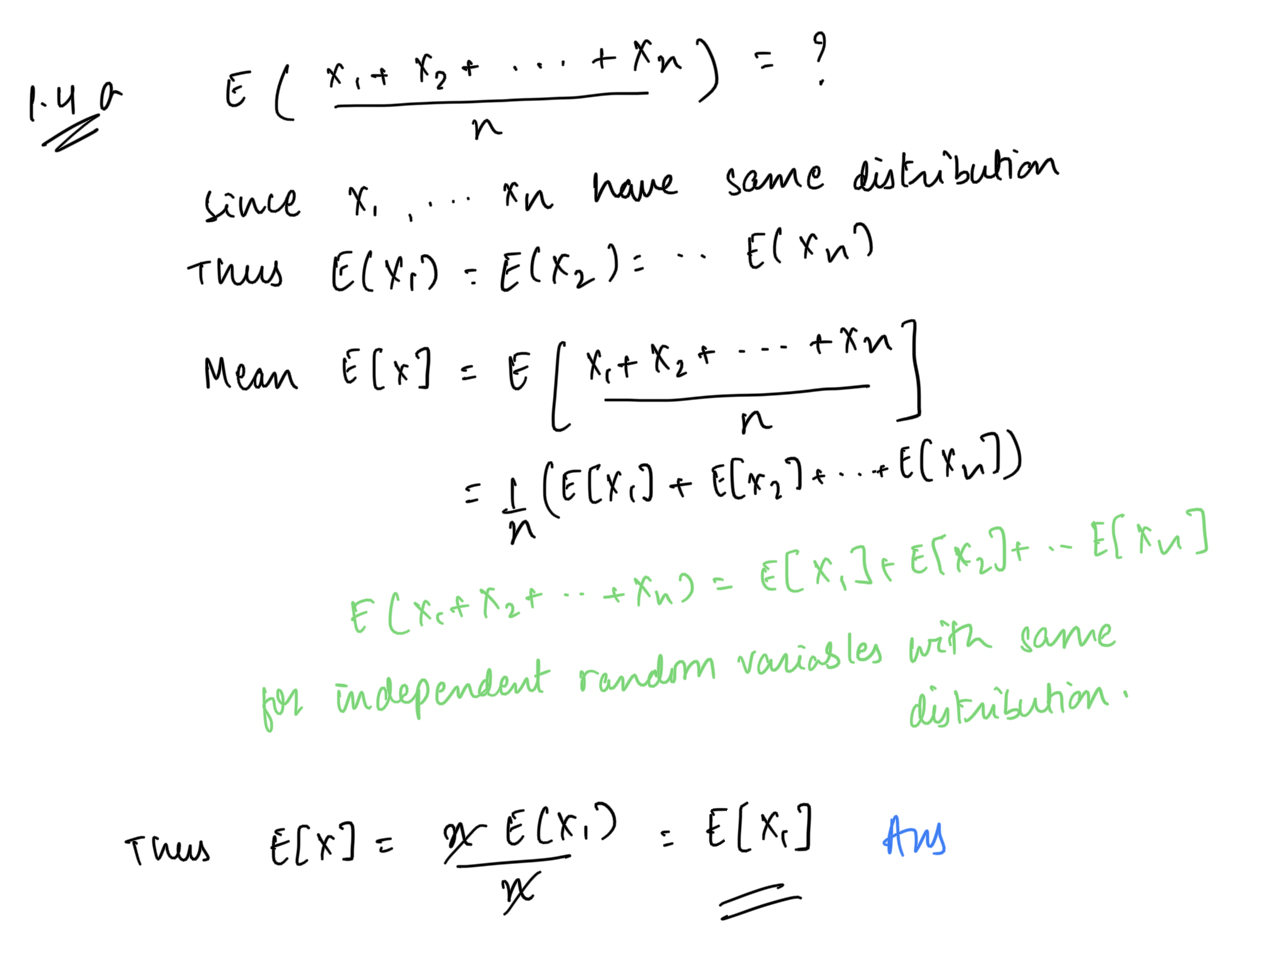 1.4 a E ( x₁ + x₂ + ... + xₙ / n ) = ?
since x₁, ... xₙ have same distribution
Thus E(x₁) = E(x₂) = .. E(xₙ)
Mean E[x] = E [ x₁ + x₂ + --- + xₙ / n ]
= 1/n (E[x₁] + E[x₂] + ... + E[xₙ])
E(x₁ + x₂ + .. + xₙ) = E[x₁] + E[x₂] + .. E[xₙ]
for independent random variables with same
distribution.
Thus E[x] = n E(x₁) / n = E[x₁] Ans